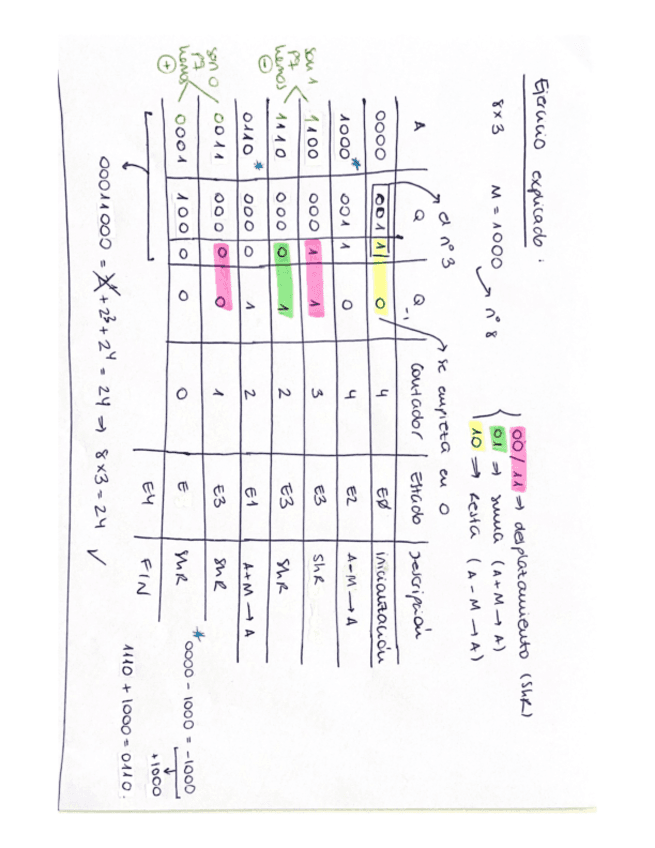 Ejercicio explicado:
8x3 M = 1000 → nº 8
00/11 ⇒ desplazamiento (ShR)
01 ⇒ suma (A+M → A)
10 ⇒ Resta (A-M → A)
el nº 3
se empieza en 0
A Q Q-1 Contador Estado Descripción
0000 0011 0 4 EØ inicialización
1000* 0011 0 4 E2 A-M → A
1100 0001 1 3 E3 ShR
1110 0000 1 2 E3 ShR
0110* 0000 1 2 E1 A+M → A
0011 0000 0 1 E3 ShR
0001 1000 0 0 E ShR
E4 FIN
son 1
pq
hemos
⊖
son 0
pq
hemos
⊕
00011000 = + 2³ + 2⁴ = 24 ⇒ 8x3 = 24 ✓
*0000 - 1000 = -1000
+1000
1110 + 1000 = 0110.